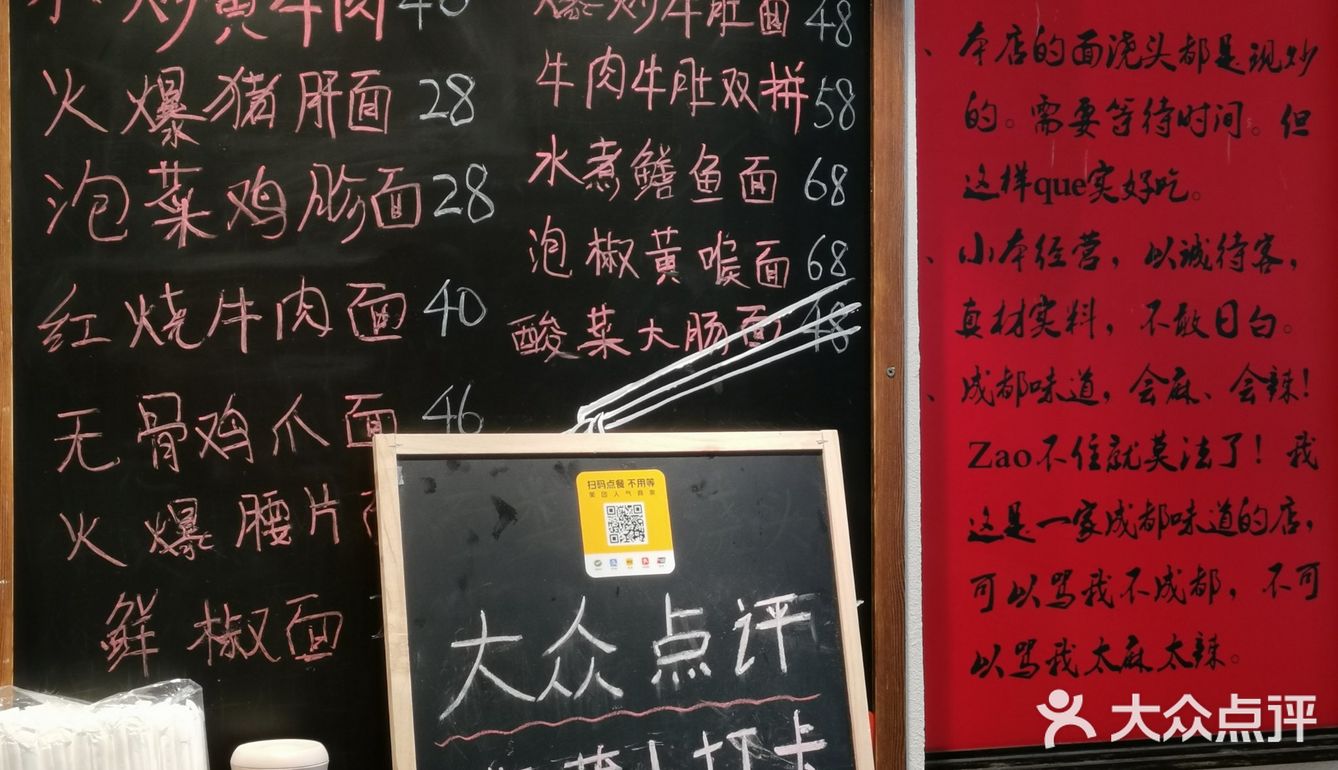 炒黄牛肉 48
火爆猪肝面 28
泡菜鸡胗面 28
红烧牛肉面 40
无骨鸡爪面 46
火爆腰片面
鲜椒面
爆炒牛肚面 48
牛肉牛肚双拼 58
水煮鳝鱼面 68
泡椒黄喉面 68
酸菜大肠面 48
扫码点餐 不用等
美团人气商家
大众点评
打卡
、本店的面浇头都是现炒
的。需要等待时间。但
这样que实好吃。
、小本经营，以诚待客，
真材实料，不敢日白。
、成都味道，会麻、会辣！
Zao不住就莫法了！我
这是一家成都味道的店，
可以骂我不成都，不可
以骂我太麻太辣。
大众点评